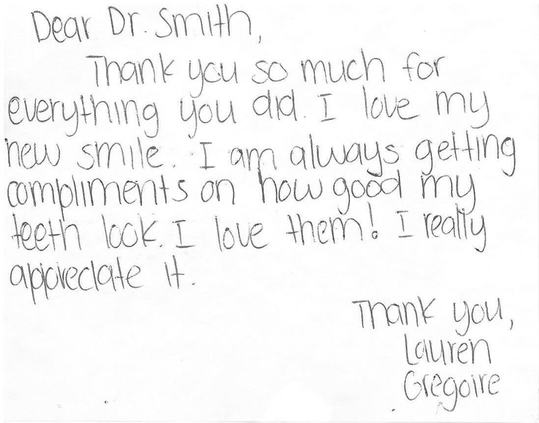 Dear Dr. Smith,
Thank you so much for
everything you did. I love my
new smile. I am always getting
compliments on how good my
teeth look. I love them! I really
appreciate it.
Thank you,
Lauren
Gregoire